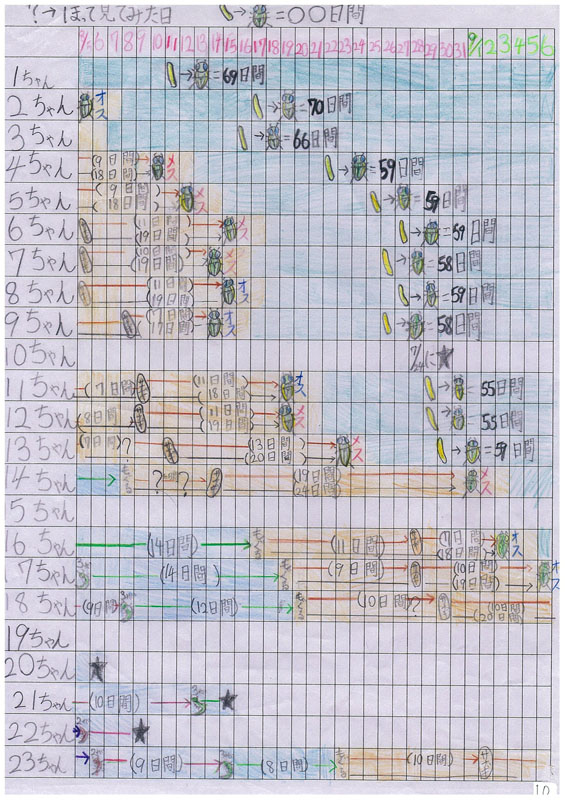 ?→ほって見てみた日 →=〇〇日間
8/5 6 7 8 9 10 11 12 13 14 15 16 17 18 19 20 21 22 23 24 25 26 27 28 29 30 31 9/1 2 3 4 5 6
1ちゃん →=69日間
2ちゃん オス →=70日間
3ちゃん →=66日間
4ちゃん (9日間) (18日間) メス →=59日間
5ちゃん (9日間) (18日間) メス →=59日間
6ちゃん (11日間) (19日間) メス →=59日間
7ちゃん (10日間) (19日間) メス →=58日間
8ちゃん (11日間) (19日間) オス →=59日間
9ちゃん (7日間) (17日間) オス →=58日間
10ちゃん 7/24に★
11ちゃん (7日間) サナギ (11日間) (18日間) オス →=55日間
12ちゃん (8日間) サナギ (11日間) (19日間) メス →=55日間
13ちゃん (7日間)? (13日間) (20日間) メス →=57日間
14ちゃん → もぐる ? ? サナギ (19日間) (24日間) メス
5ちゃん
16ちゃん (14日間) もぐる (11日間) サナギ (7日間) (18日間) オス
17ちゃん 3れい (14日間) もぐる (9日間) サナギ (10日間) (19日間) オス
18ちゃん (9日間) 3れい (12日間) もぐる (10日間)?? (10日間) (20日間)
19ちゃん
20ちゃん ★
21ちゃん (10日間) 3れい ★
22ちゃん 2れい ★
23ちゃん 2れい (9日間) 3れい (8日間) もぐる (10日間) サナギ
10